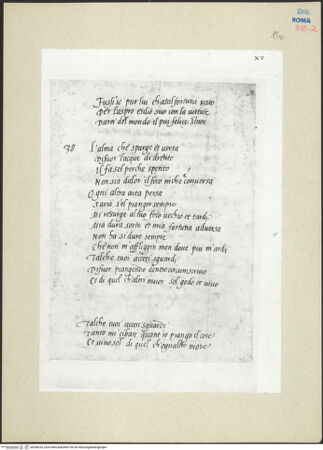 DIS.
ROMA
XV
Fuss'io pur lui c'hatal fortuna nato
Per l'aspro esilio suo con la virtute
Darei del mondo il piu felice stato
38 L'alma che sparge et versa
Di fuor l'acque di drento
Il fa sol perche spento
Non sia dal or il foco in che conversa
Ogni altra aita persa
Saria s'el pianger sempre
Mi resurge al tuo foco vechio et tardi
Mia dura sorte et mia fortuna adversa
Non ha si dure tempre
Che non m'affligghin men dove piu m'ardi
Tal che tuoi accesi sguardi
Di fuor piangendo dentro circumscrivo
Et di quel ch'altri muor sol godo et vivo
Tal che tuoi accesi sguardi
Tanto mi ciban quant'io piango il core
Et vivo sol di quel ch'ognaltro more